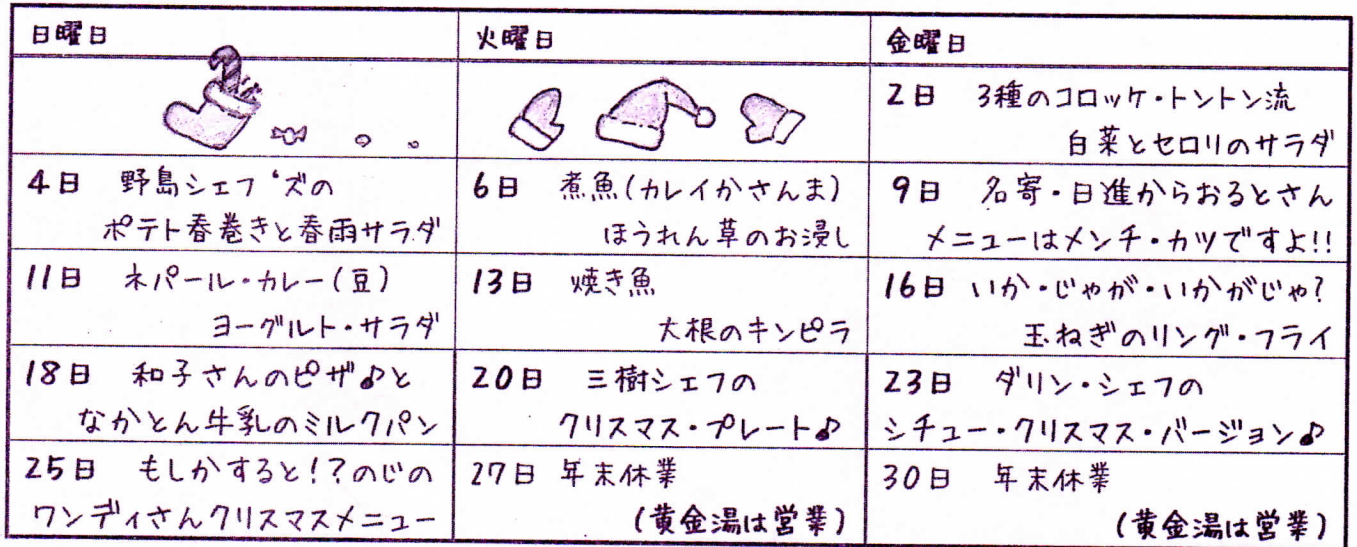 日曜日
火曜日
金曜日
2日 3種のコロッケ・トントン流
白菜とセロリのサラダ
4日 野島シェフ'ズの
ポテト春巻きと春雨サラダ
6日 煮魚(カレイかさんま)
ほうれん草のお浸し
9日 名寄・日進からおるとさん
メニューはメンチ・カツですよ!!
11日 ネパール・カレー(豆)
ヨーグルト・サラダ
13日 焼き魚
大根のキンピラ
16日 いか・じゃが・いかがじゃ?
玉ねぎのリング・フライ
18日 和子さんのピザ♪と
なかとん牛乳のミルクパン
20日 三樹シェフの
クリスマス・プレート♪
23日 ダリン・シェフの
シチュー・クリスマス・バージョン♪
25日 もしかすると!?のじの
ワンディさんクリスマスメニュー
27日 年末休業
(黄金湯は営業)
30日 年末休業
(黄金湯は営業)